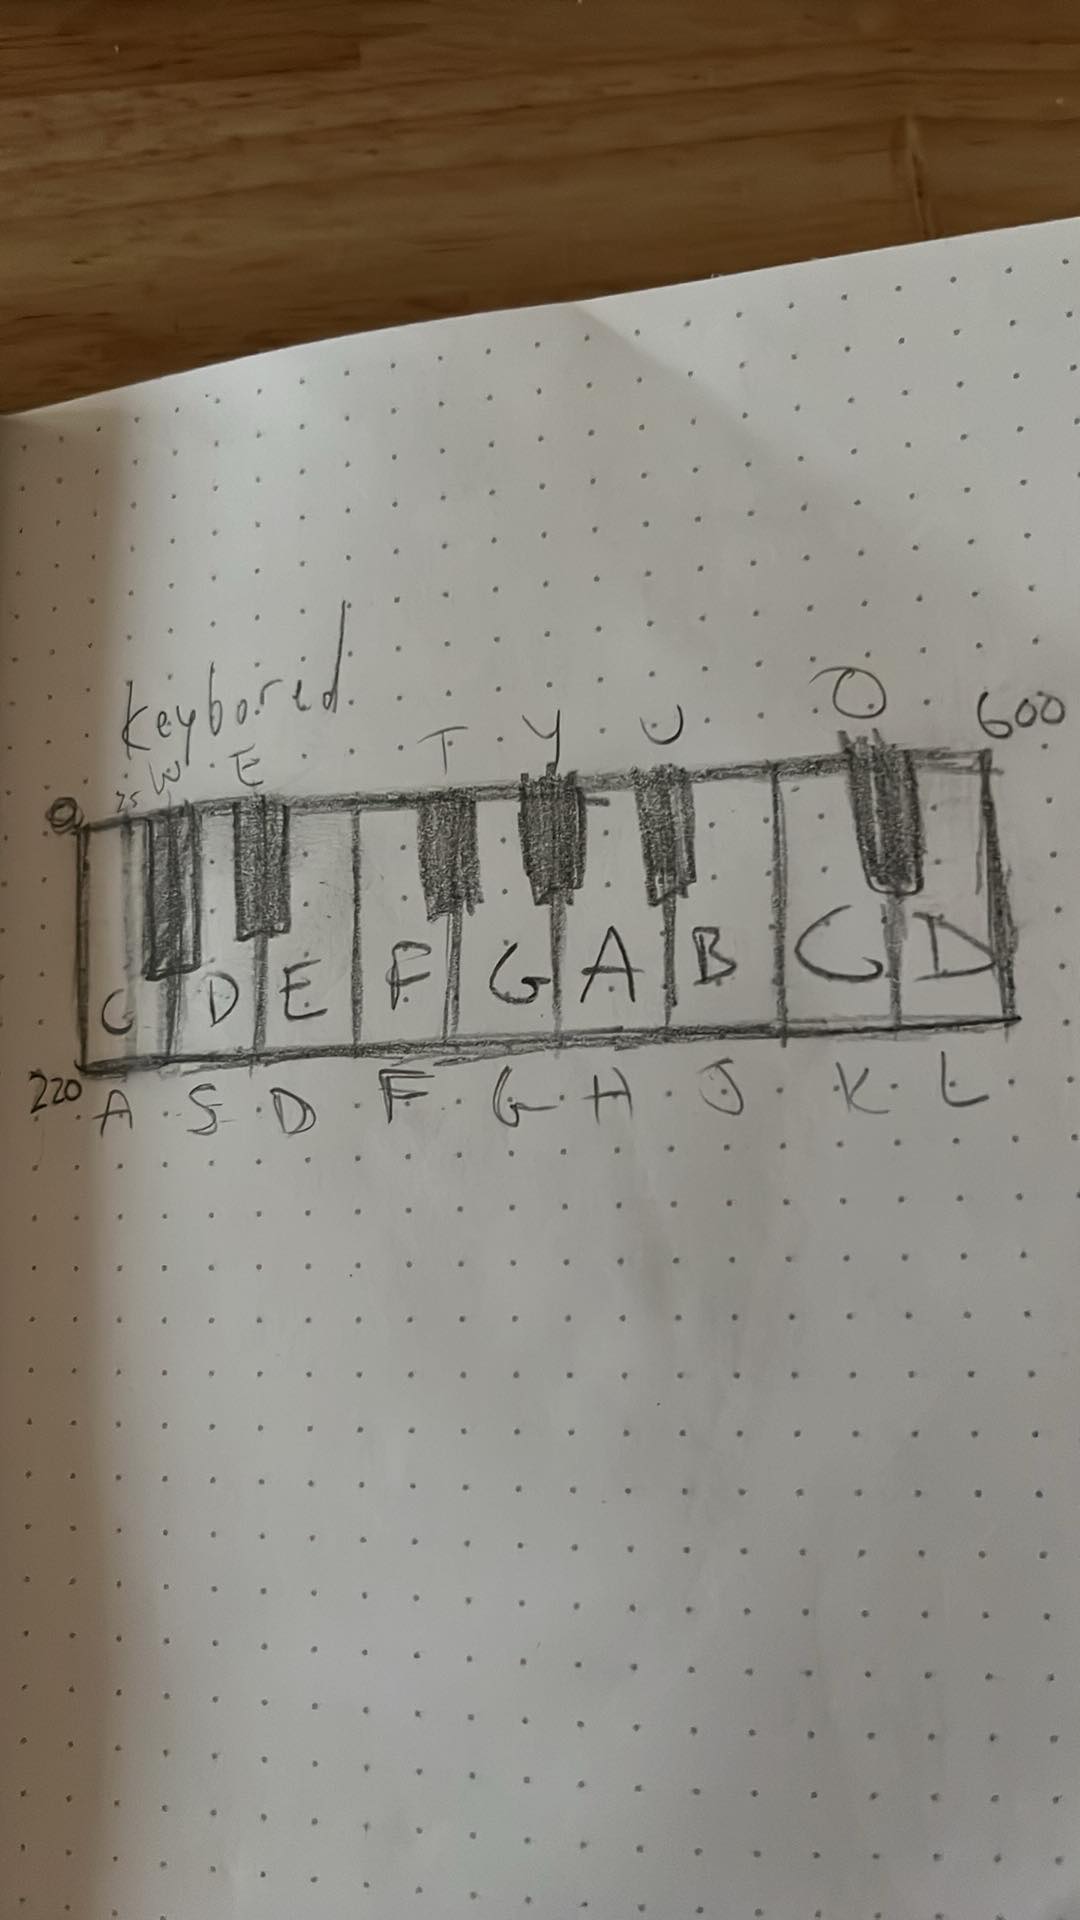 Keybored
W E T Y U O 600
0 25
C D E F G A B C D
220 A S D F G H J K L